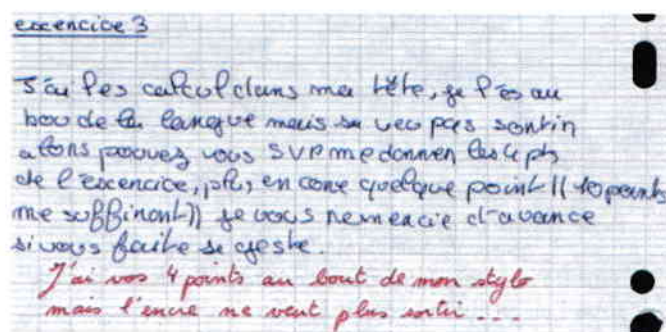 excencice 3
J'ai les calcul dans ma tête, je l'es au
bou de la langue mais sa veu pas sortin
alons pouvez vous SVP me donnen les 4 pts
de l'excencice, plus en cone quelque point (( 10 points
me suffinont)) je vous nemencie d'avance
si vous faite se geste.
J'ai vos 4 points au bout de mon stylo
mais l'encre ne veut plus sortir ...